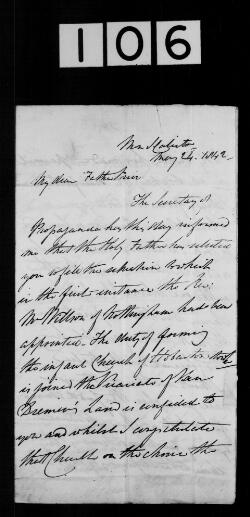 106
May 24. 1842
My dear Father
The Secretary of
Propaganda has this day informed
me that the Holy Father has selected
you to fill the situation to which
in the first instance the Rev
Mr Willson of Nottingham had been
appointed. The duty of forming
the infant Church of Hobarton
is joined the Vicariate of Van
Diemen's Land is confided to
you and whilst I congratulate
that Church on the choice the